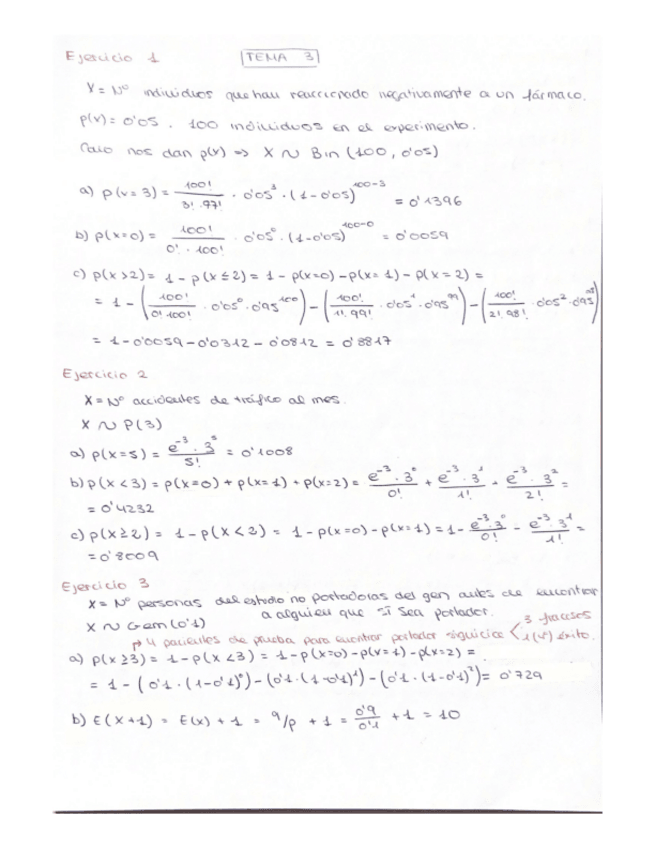 Ejercicio 1 TEMA 3
X = Nº individuos que han reaccionado negativamente a un fármaco.
p(x) = 0'05 . 100 individuos en el experimento.
nos dan p(x) => X ~ Bin (100, 0'05)
a) p(x = 3) = 100! / 3! · 97! · 0'05^3 · (1-0'05)^100-3 = 0'1396
b) p(x=0) = 100! / 0! · 100! · 0'05^0 · (1-0'05)^100-0 = 0'0059
c) p(x >2) = 1 - p(x ≤ 2) = 1 - p(x=0) - p(x=1) - p(x = 2) =
= 1 - (100! / 0! 100! · 0'05^0 · 0'95^100) - (100! / 1! · 99! · 0'05^1 · 0'95^99) - (100! / 2! · 98! · 0'05^2 · 0'95^98)
= 1 - 0'0059 - 0'0312 - 0'0812 = 0'8817
Ejercicio 2
X = Nº accidentes de tráfico al mes.
X ~ P(3)
a) p(x=5) = e^-3 · 3^5 / 5! = 0'1008
b) p(x < 3) = p(x=0) + p(x=1) + p(x=2) = e^-3 · 3^0 / 0! + e^-3 · 3^1 / 1! + e^-3 · 3^2 / 2! =
= 0'4232
c) p(x ≥ 2) = 1 - p(x < 2) = 1 - p(x=0) - p(x=1) = 1 - e^-3 · 3^0 / 0! - e^-3 · 3^1 / 1! =
= 0'8009
Ejercicio 3
X = Nº personas del estudio no portadoras del gen antes de encontrar
a alguien que sí sea portador.
X ~ Geom (0'1)
4 pacientes de prueba para encontrar portador significa < 3 fracasos
1 (4º) éxito.
a) p(x ≥ 3) = 1 - p(x < 3) = 1 - p(x=0) - p(x=1) - p(x=2) =
= 1 - (0'1 · (1-0'1)^0) - (0'1 · (1-0'1)^1) - (0'1 · (1-0'1)^2) = 0'729
b) E(x+1) = E(x) + 1 = q/p + 1 = 0'9 / 0'1 + 1 = 10